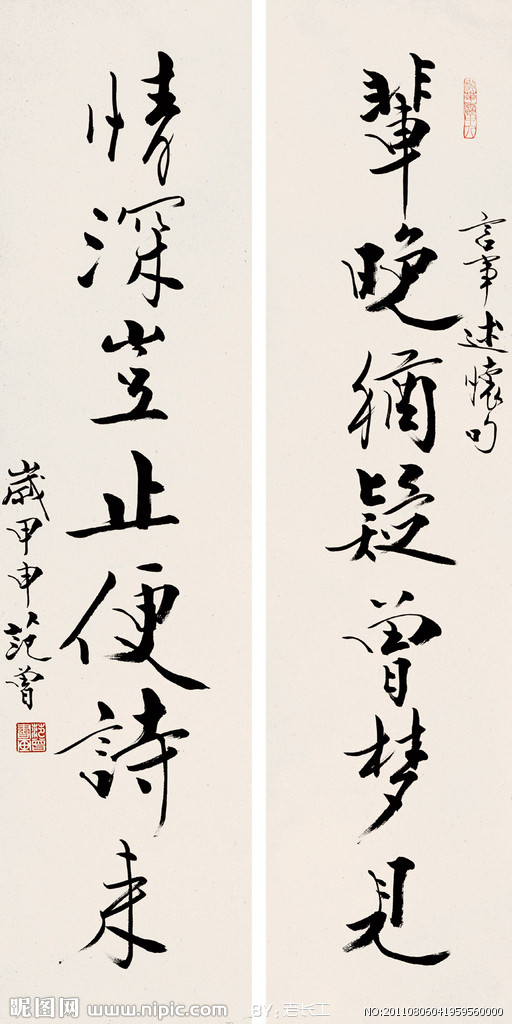 言事述懷句
輩晚猶疑曾梦見
情深豈止便詩来
歲甲申范曾
昵图网 www.nipic.com
BY:老长工
NO:20110806041959560000